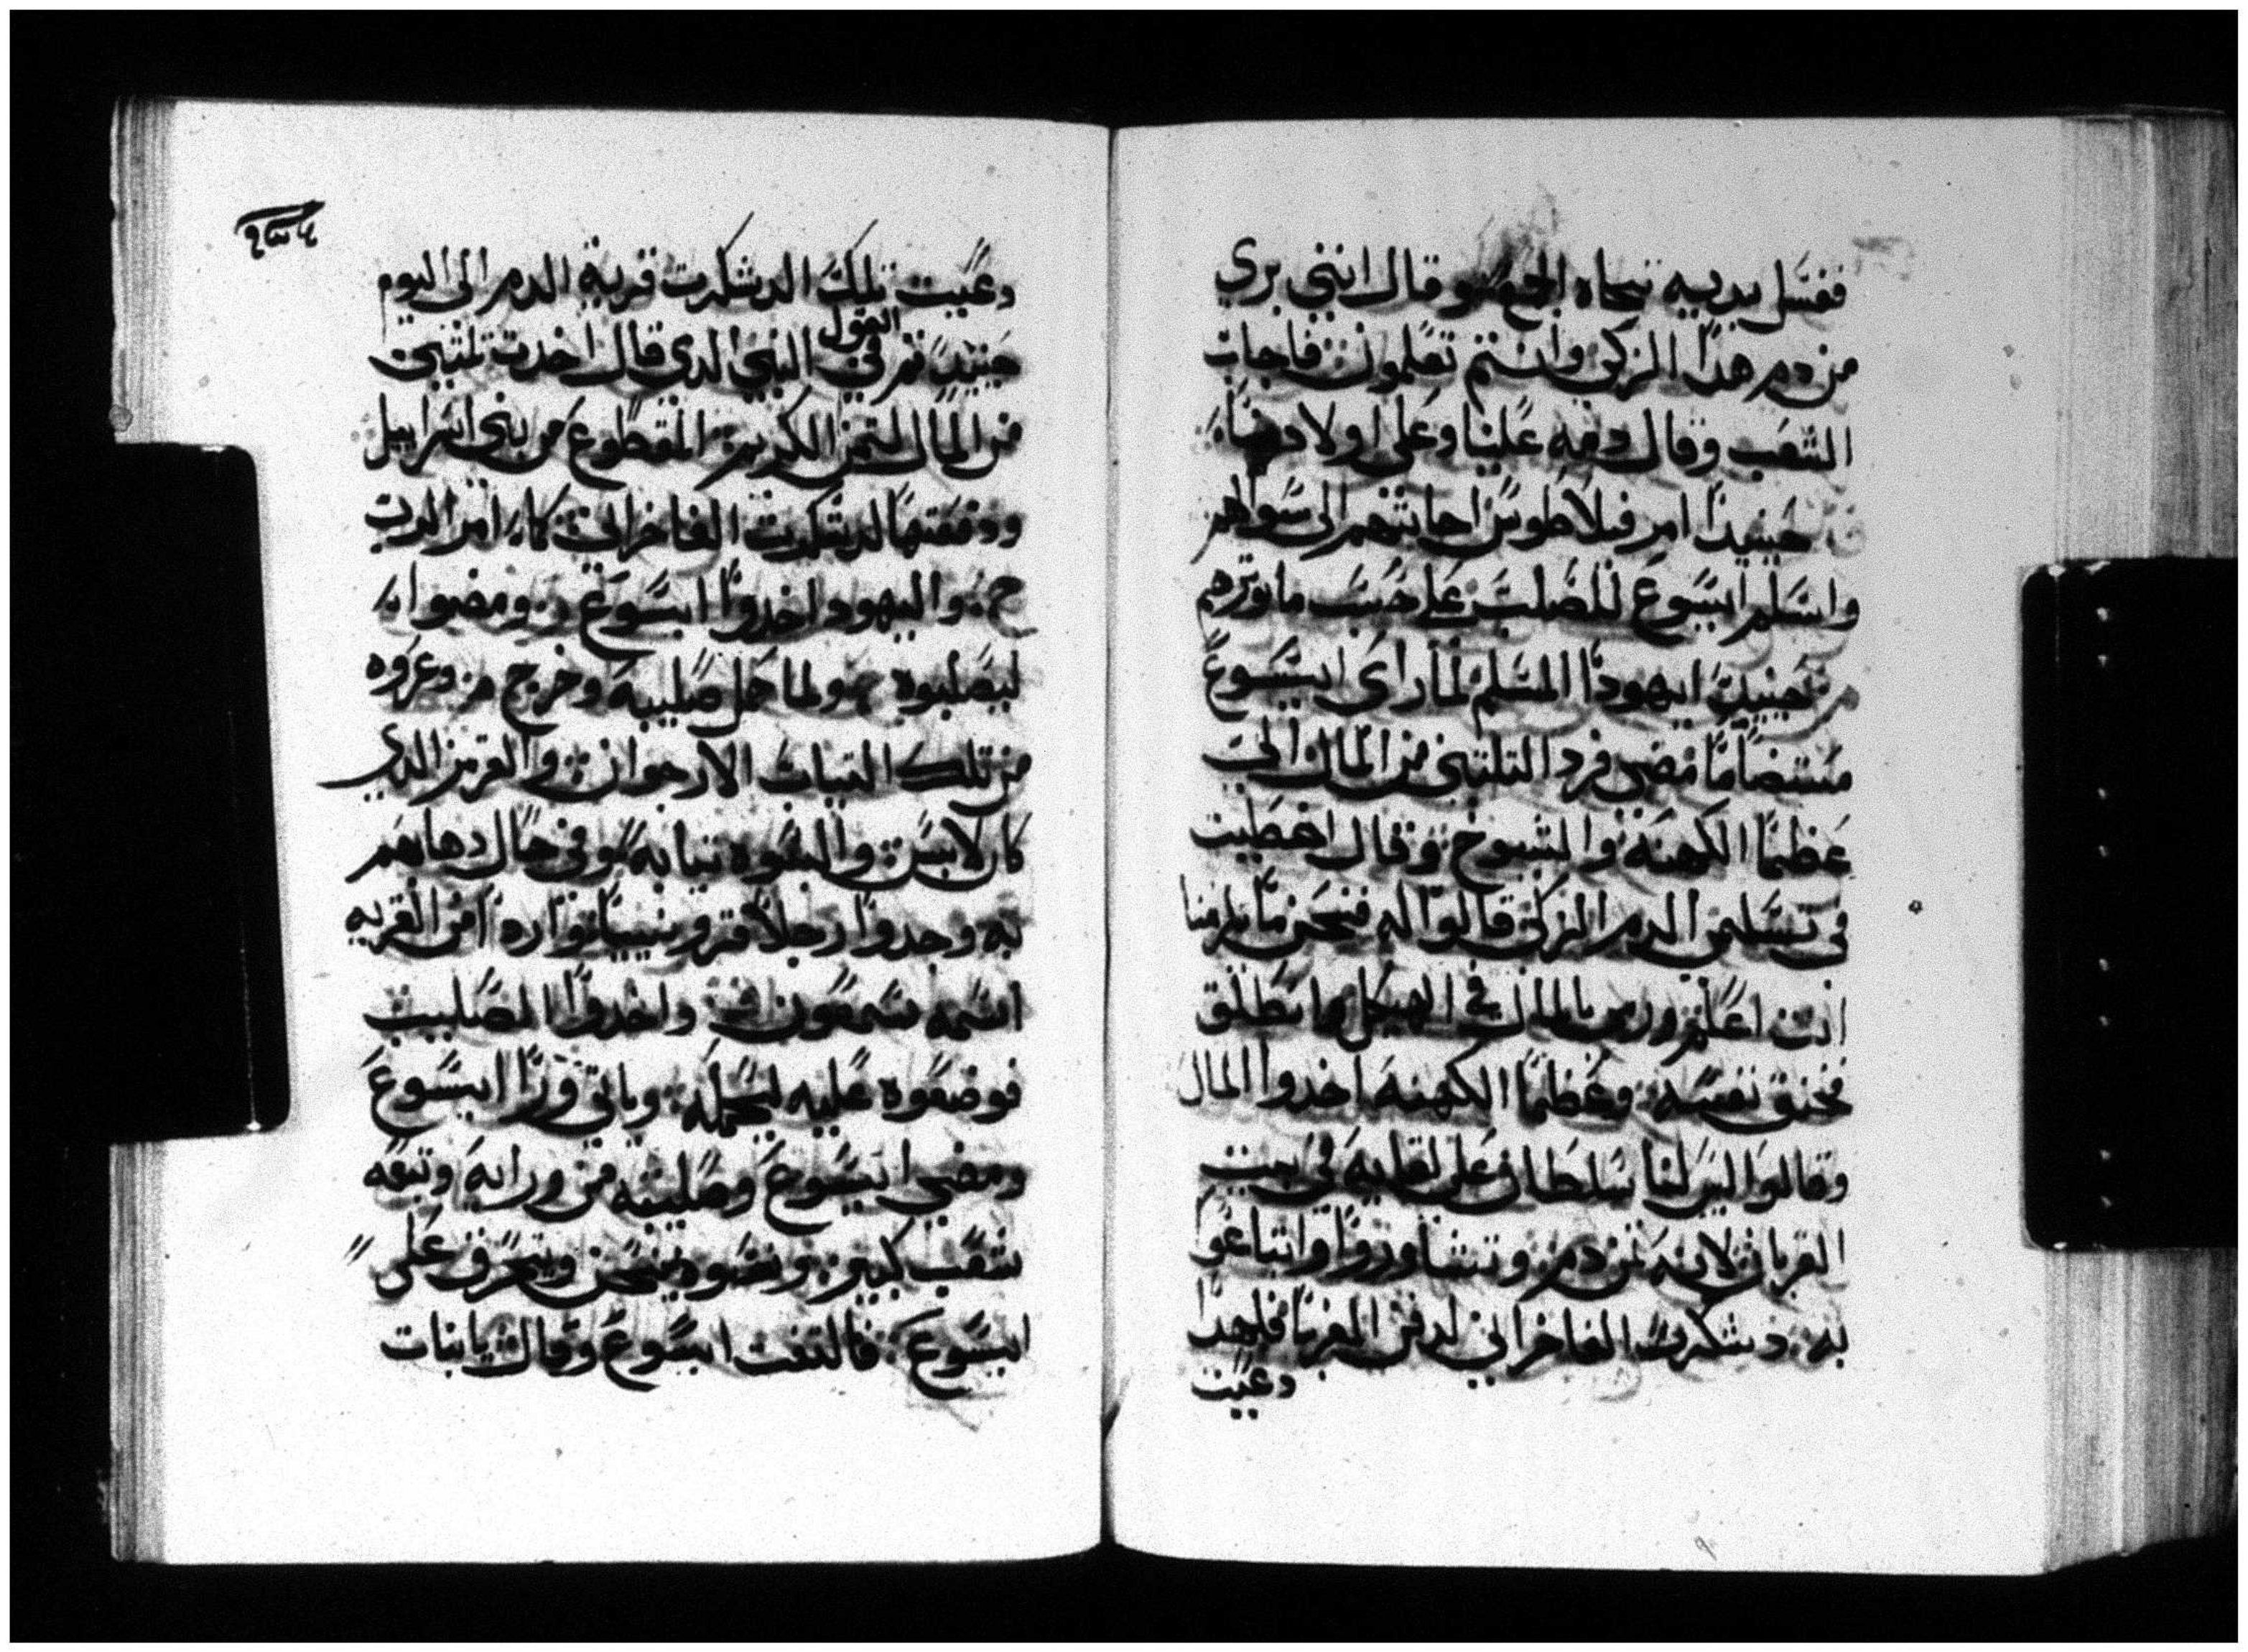 فغسل يديه تجاه الجمع و قال انني بري
من دم هدا الزكي وانتم تعلمون فاجاب
الشعب وقال دمه علينا وعلى اولادنا
حينيدا امر فيلاطوس اجابتهم الى سوالهم
واسلم ايسوع للصلب على حسب ماثورتهم
حينيد ايهودا المسلم لما راى ايسوع
منتضاما مضى فرد التلتين من المال الى
عظما الكهنه والشيوخ وقال اخطيت
في تسليمي الدم الزكي قالوا له فنحن ما يلزمنا
انت اعلم ورمى بالمال في الهيكل وانطلق
فخنق نفسه وعظما الكهنه اخدوا المال
وقالوا ليس لنا سلطان على لقليه في بيت
القربان لانه تمن دم وتشاوروا وابتاعوا
به دسكرت الفاخراني لدفن الغربا فلهدا
دعيت
دعيت تلك الدسكرت قرية الدم الى اليوم
حينيد تم في القول النبي الدي قال اخدت تلتين
من المال التمن الكريم المقطوع من بني اسراييل
ودفعتها لدسكرت الفاخراني كما امر الرب
واليهود اخدوا ايسوع ومضوا
ليصلبوه ولما حمل صليبه وخرج وعروه
من تلك التياب الارجوان والقرمز الدي
كان لابس والبسوه تيابه و في حال دهابهم
به وجدوا رجلا قرونييا واردا من القريه
اسمه سمعون واخدوا الصليب
فوضعوه عليه ليحمله وياتي ورا ايسوع
ومضى ايسوع وصليبه من ورايه وتبعه
شعب كبير ونسوه ينحن وبتحرق على
ايسوع فالتفت ايسوع وقال يا بنات